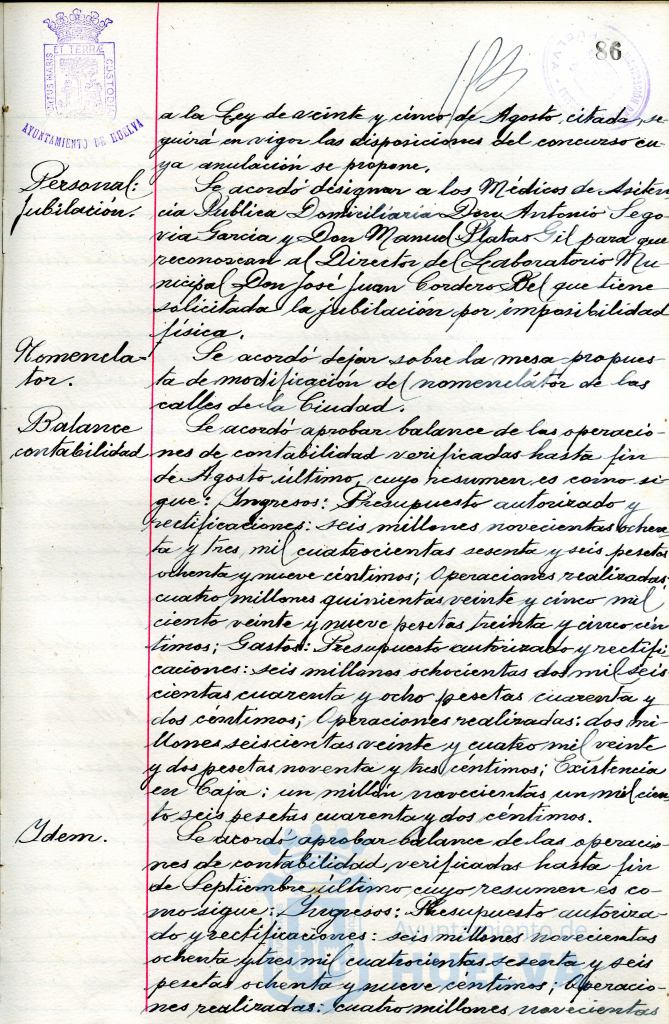 86
PORTUS MARIS ET TERRÆ CUSTODIA
AYUNTAMIENTO DE HUELVA
a la Ley de veinte y cinco de Agosto, citada, se-
guirá en vigor las disposiciones del concurso cu-
ya anulación se propone.
Personal:
Jubilación.
Se acordó designar a los Médicos de Asiten-
cia Publica Domiciliaria Don Antonio Sego-
via García y Don Manuel Platas Gil para que
reconozcan al Director del Laboratorio Mu-
nicipal Don José Juan Cordero Bel que tiene
solicitada la jubilación por imposibilidad
física.
Nomencla-
tor.
Se acordó dejar sobre la mesa propues-
ta de modificación del nomenclátor de las
calles de la Ciudad.
Balance
contabilidad
Se acordó aprobar balance de las operacio-
nes de contabilidad verificadas hasta fin
de Agosto último, cuyo resumen es como si-
gue: Ingresos: Presupuesto autorizado y
rectificaciones: seis millones novecientas ochen-
ta y tres mil cuatrocientas sesenta y seis pesetas
ochenta y nueve céntimos; Operaciones realizadas:
cuatro millones quinientas veinte y cinco mil
ciento veinte y nueve pesetas treinta y cinco cén-
timos; Gastos: Presupuesto autorizado y rectifi-
caciones: seis millones ochocientas dos mil seis-
cientas cuarenta y ocho pesetas cuarenta y
dos céntimos; Operaciones realizadas: dos mi-
llones seiscientas veinte y cuatro mil veinte
y dos pesetas noventa y tres céntimos; Existencia
en Caja: un millón novecientas un mil cien-
to seis pesetas cuarenta y dos céntimos.
Idem.
Se acordó aprobar balance de las operacio-
nes de contabilidad verificadas hasta fin
de Septiembre último cuyo resumen es co-
mo sigue: Ingresos: Presupuesto autoriza-
do y rectificaciones: seis millones novecientas
ochenta y tres mil cuatrocientas sesenta y seis
pesetas ochenta y nueve céntimos; Operacio-
nes realizadas: cuatro millones novecientas
Ayuntamiento de
HUELVA